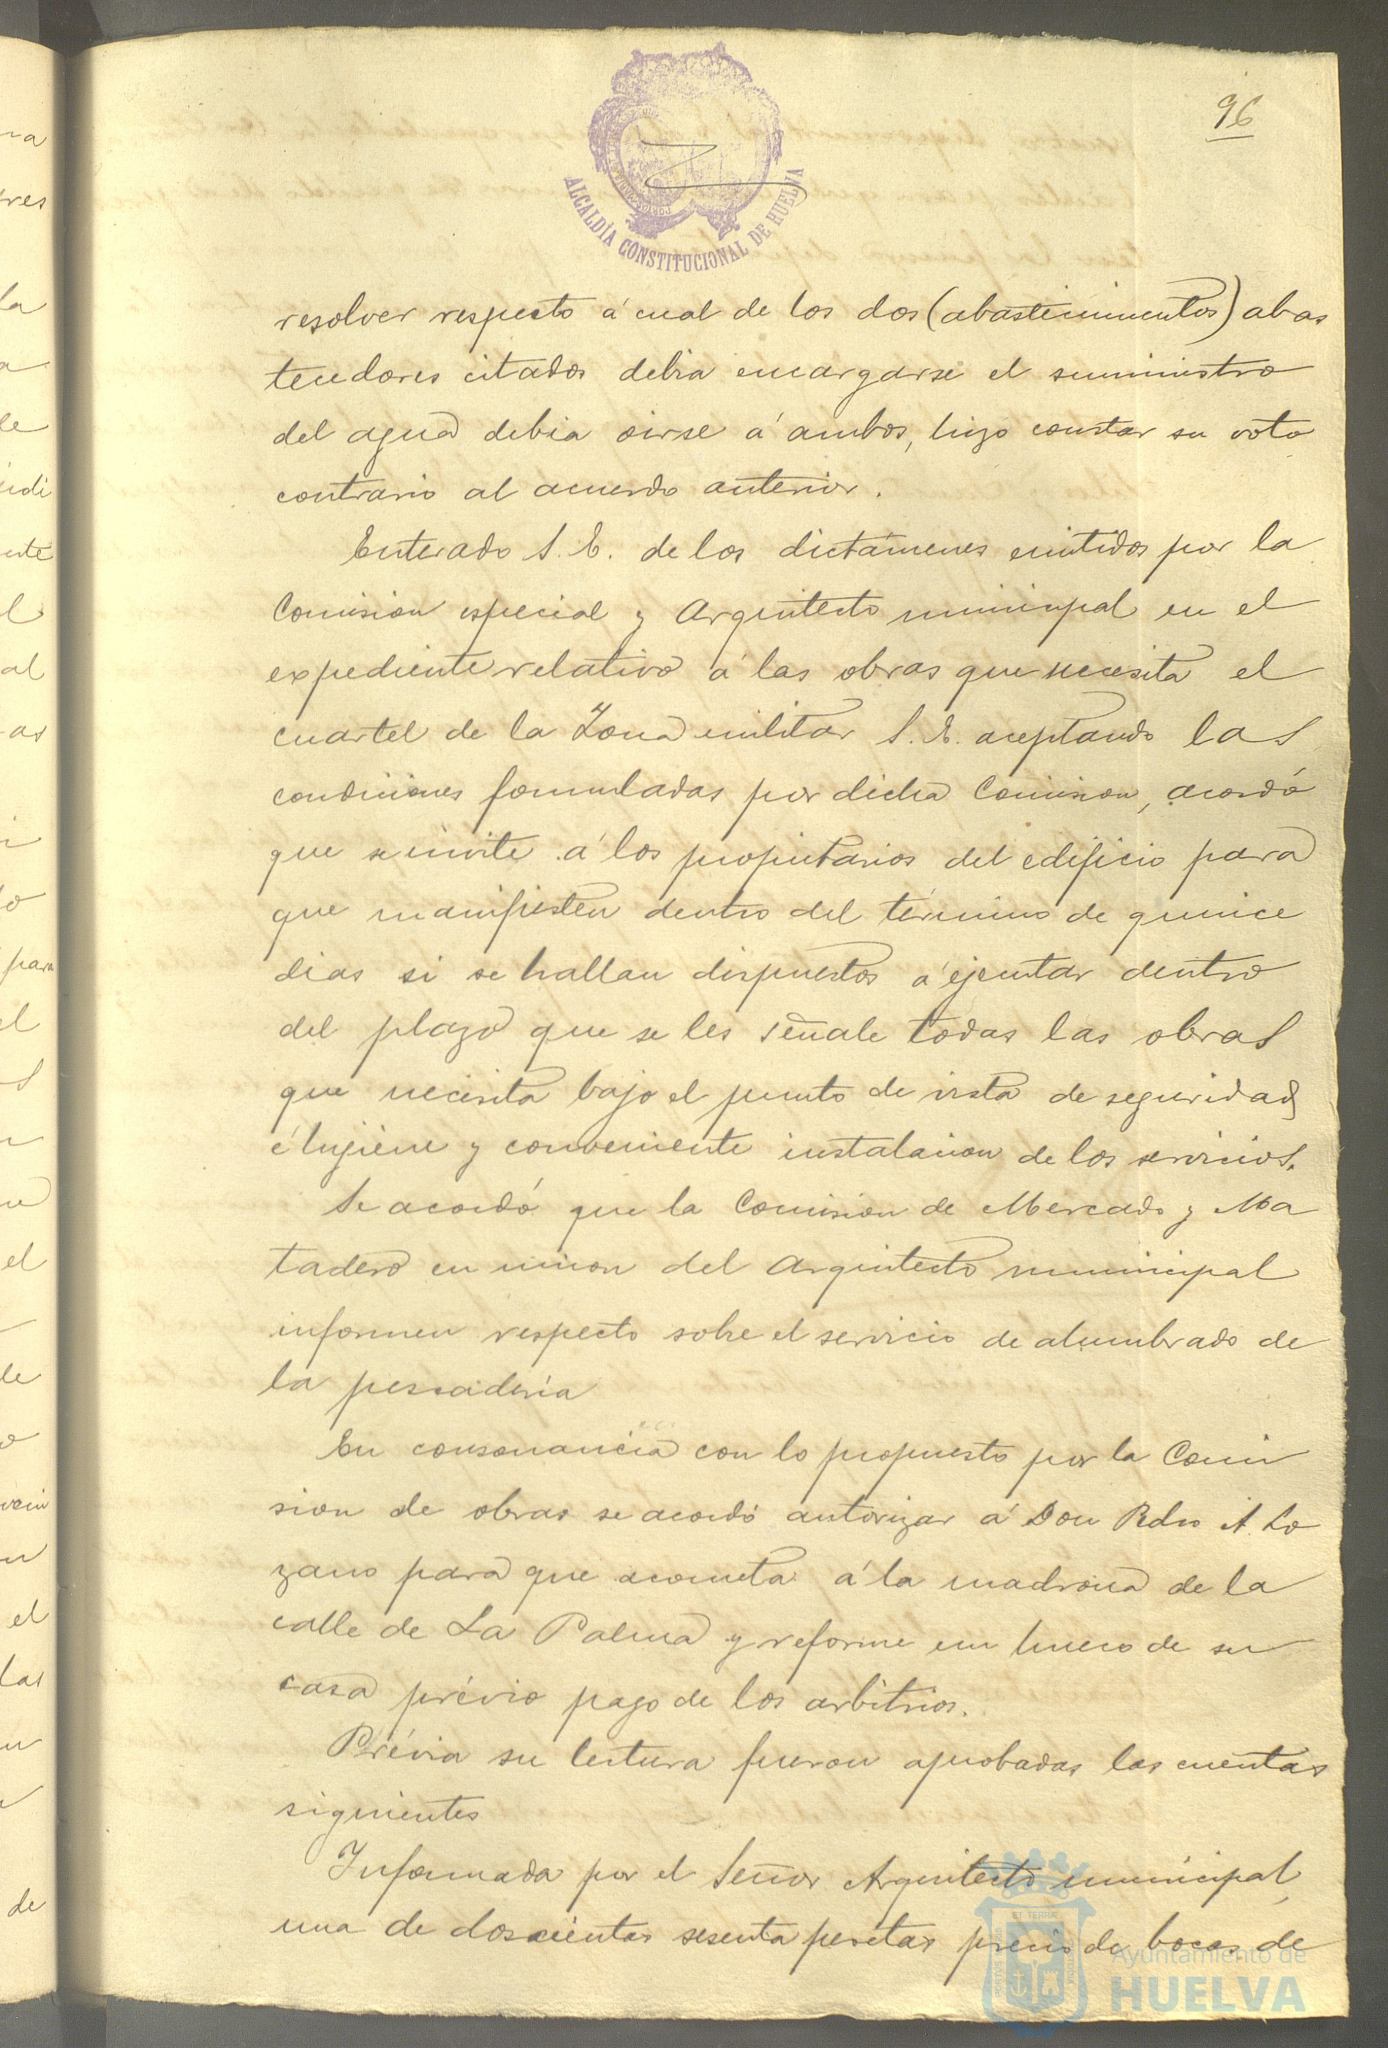 96
ALCALDÍA CONSTITUCIONAL DE HUELVA
resolver respecto á cual de los dos (abastecimientos) abas
tecedores citados debia encargarse el suministro
del agua debia oirse á ambos, hizo constar su voto
contrario al acuerdo anterior.
Enterado S. E. de los dictámenes emitidos por la
Comision especial y Arquitecto municipal en el
expediente relativo á las obras que necesita el
cuartel de la Zona militar S. E. aceptando las
condiciones formuladas por dicha Comision, acordó
que se invite á los propietarios del edificio para
que manifiesten dentro del término de quince
dias si se hallan dispuestos á ejecutar dentro
del plazo que se les señale todas las obras
que necesita bajo el punto de vista de seguridad
é higiene y conveniente instalacion de los servicios.
Se acordó que la Comision de Mercado y Ma
tadero en union del Arquitecto municipal
informen respecto sobre el servicio de alumbrado de
la pescaderia
En consonancia con lo propuesto por la Comi
sion de obras se acordó autorizar á Don Pedro A. Lo
zano para que acometa á la madrona de la
calle de La Palma y reforme un hueco de su
casa prévio pago de los arbitrios.
Prévia su lectura fueron aprobadas las cuentas
siguientes
Informada por el Señor Arquitecto municipal,
una de doscientas sesenta pesetas precio de bocas de
Ayuntamiento de
HUELVA